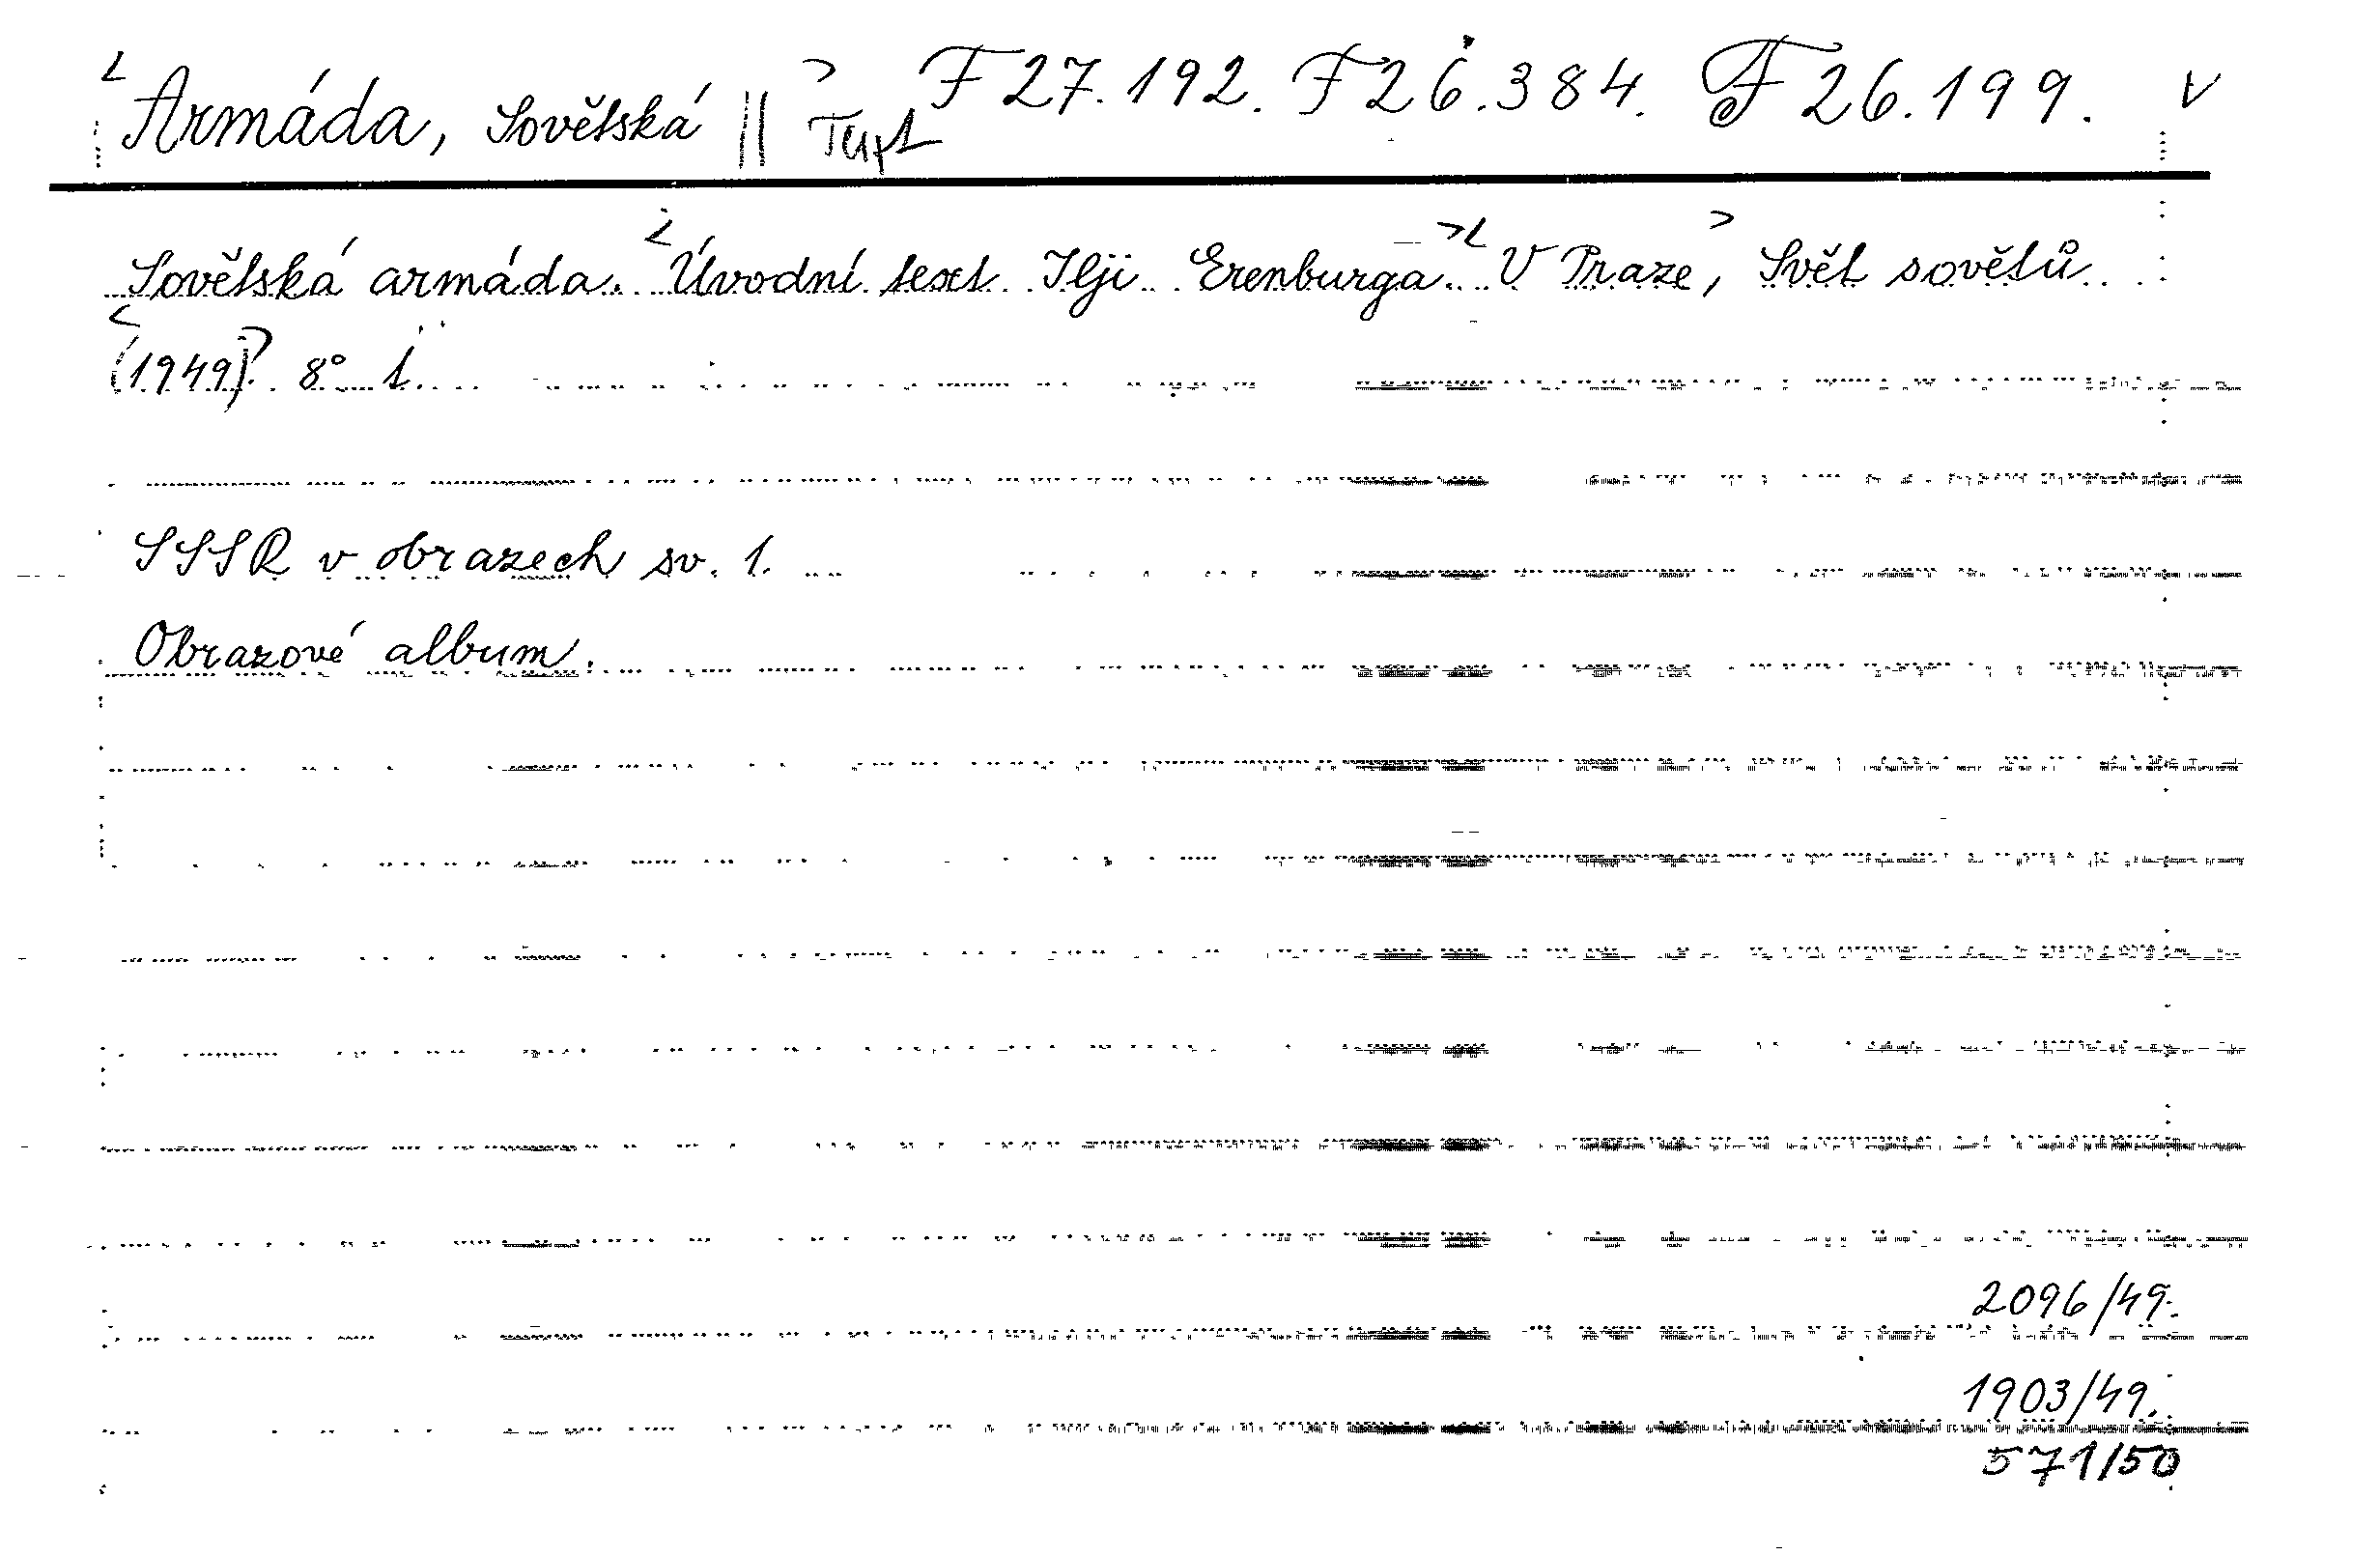 Armáda, Sovětská || F 27.192. F 26.384. F 26.199. v
Sovětská armáda. Úvodní text Ilji Erenburga. V Praze, Svět sovětů
(1949). 8° l.
SSSR v obrazech sv. 1.
Obrazové album.
2096/49.
1903/49.
571/50